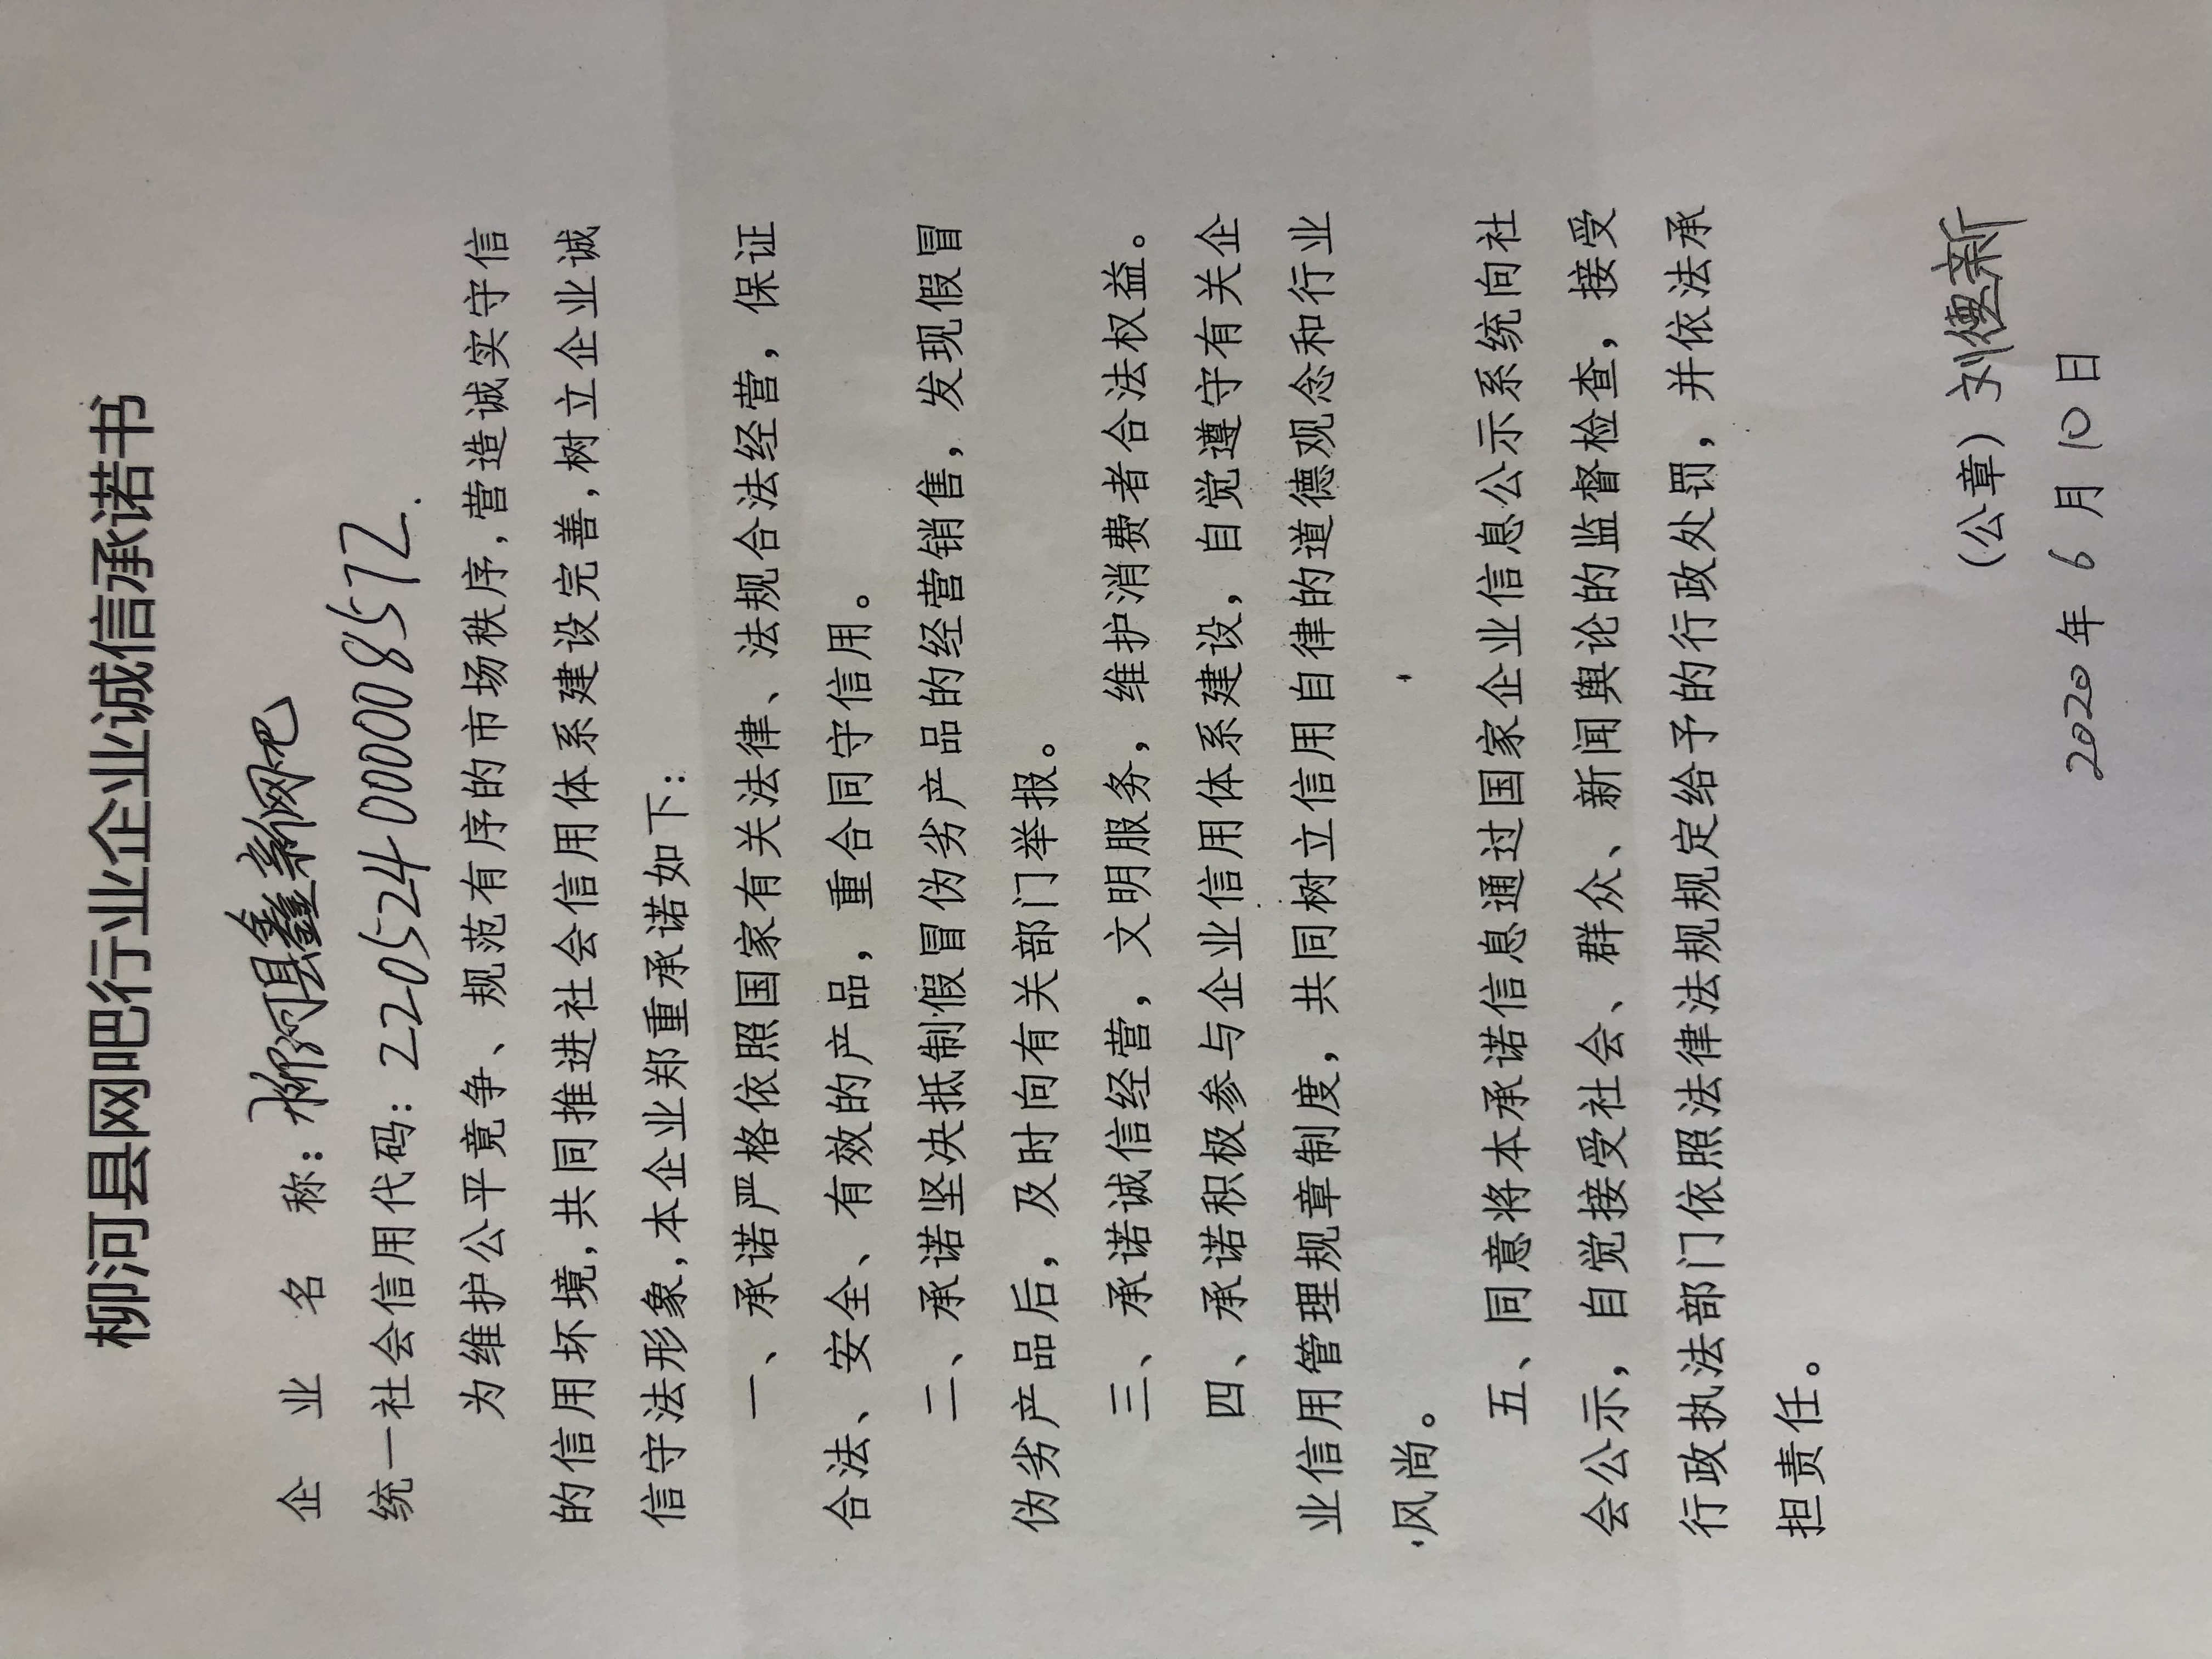 柳河县网吧行业企业诚信承诺书
企业名称：柳河县鑫新网吧
统一社会信用代码：220524000008572.
为维护公平竞争、规范有序的市场秩序,营造诚实守信
的信用坏境,共同推进社会信用体系建设完善,树立企业诚
信守法形象,本企业郑重承诺如下：
一、承诺严格依照国家有关法律、法规合法经营，保证
合法、安全、有效的产品，重合同守信用。
二、承诺坚决抵制假冒伪劣产品的经营销售，发现假冒
伪劣产品后，及时向有关部门举报。
三、承诺诚信经营，文明服务，维护消费者合法权益。
四、承诺积极参与企业信用体系建设，自觉遵守有关企
业信用管理规章制度，共同树立信用自律的道德观念和行业
风尚。
五、同意将本承诺信息通过国家企业信息公示系统向社
会公示，自觉接受社会、群众、新闻舆论的监督检查，接受
行政执法部门依照法律法规规定给予的行政处罚，并依法承
担责任。
（公章）刘德新
2020年6月10日